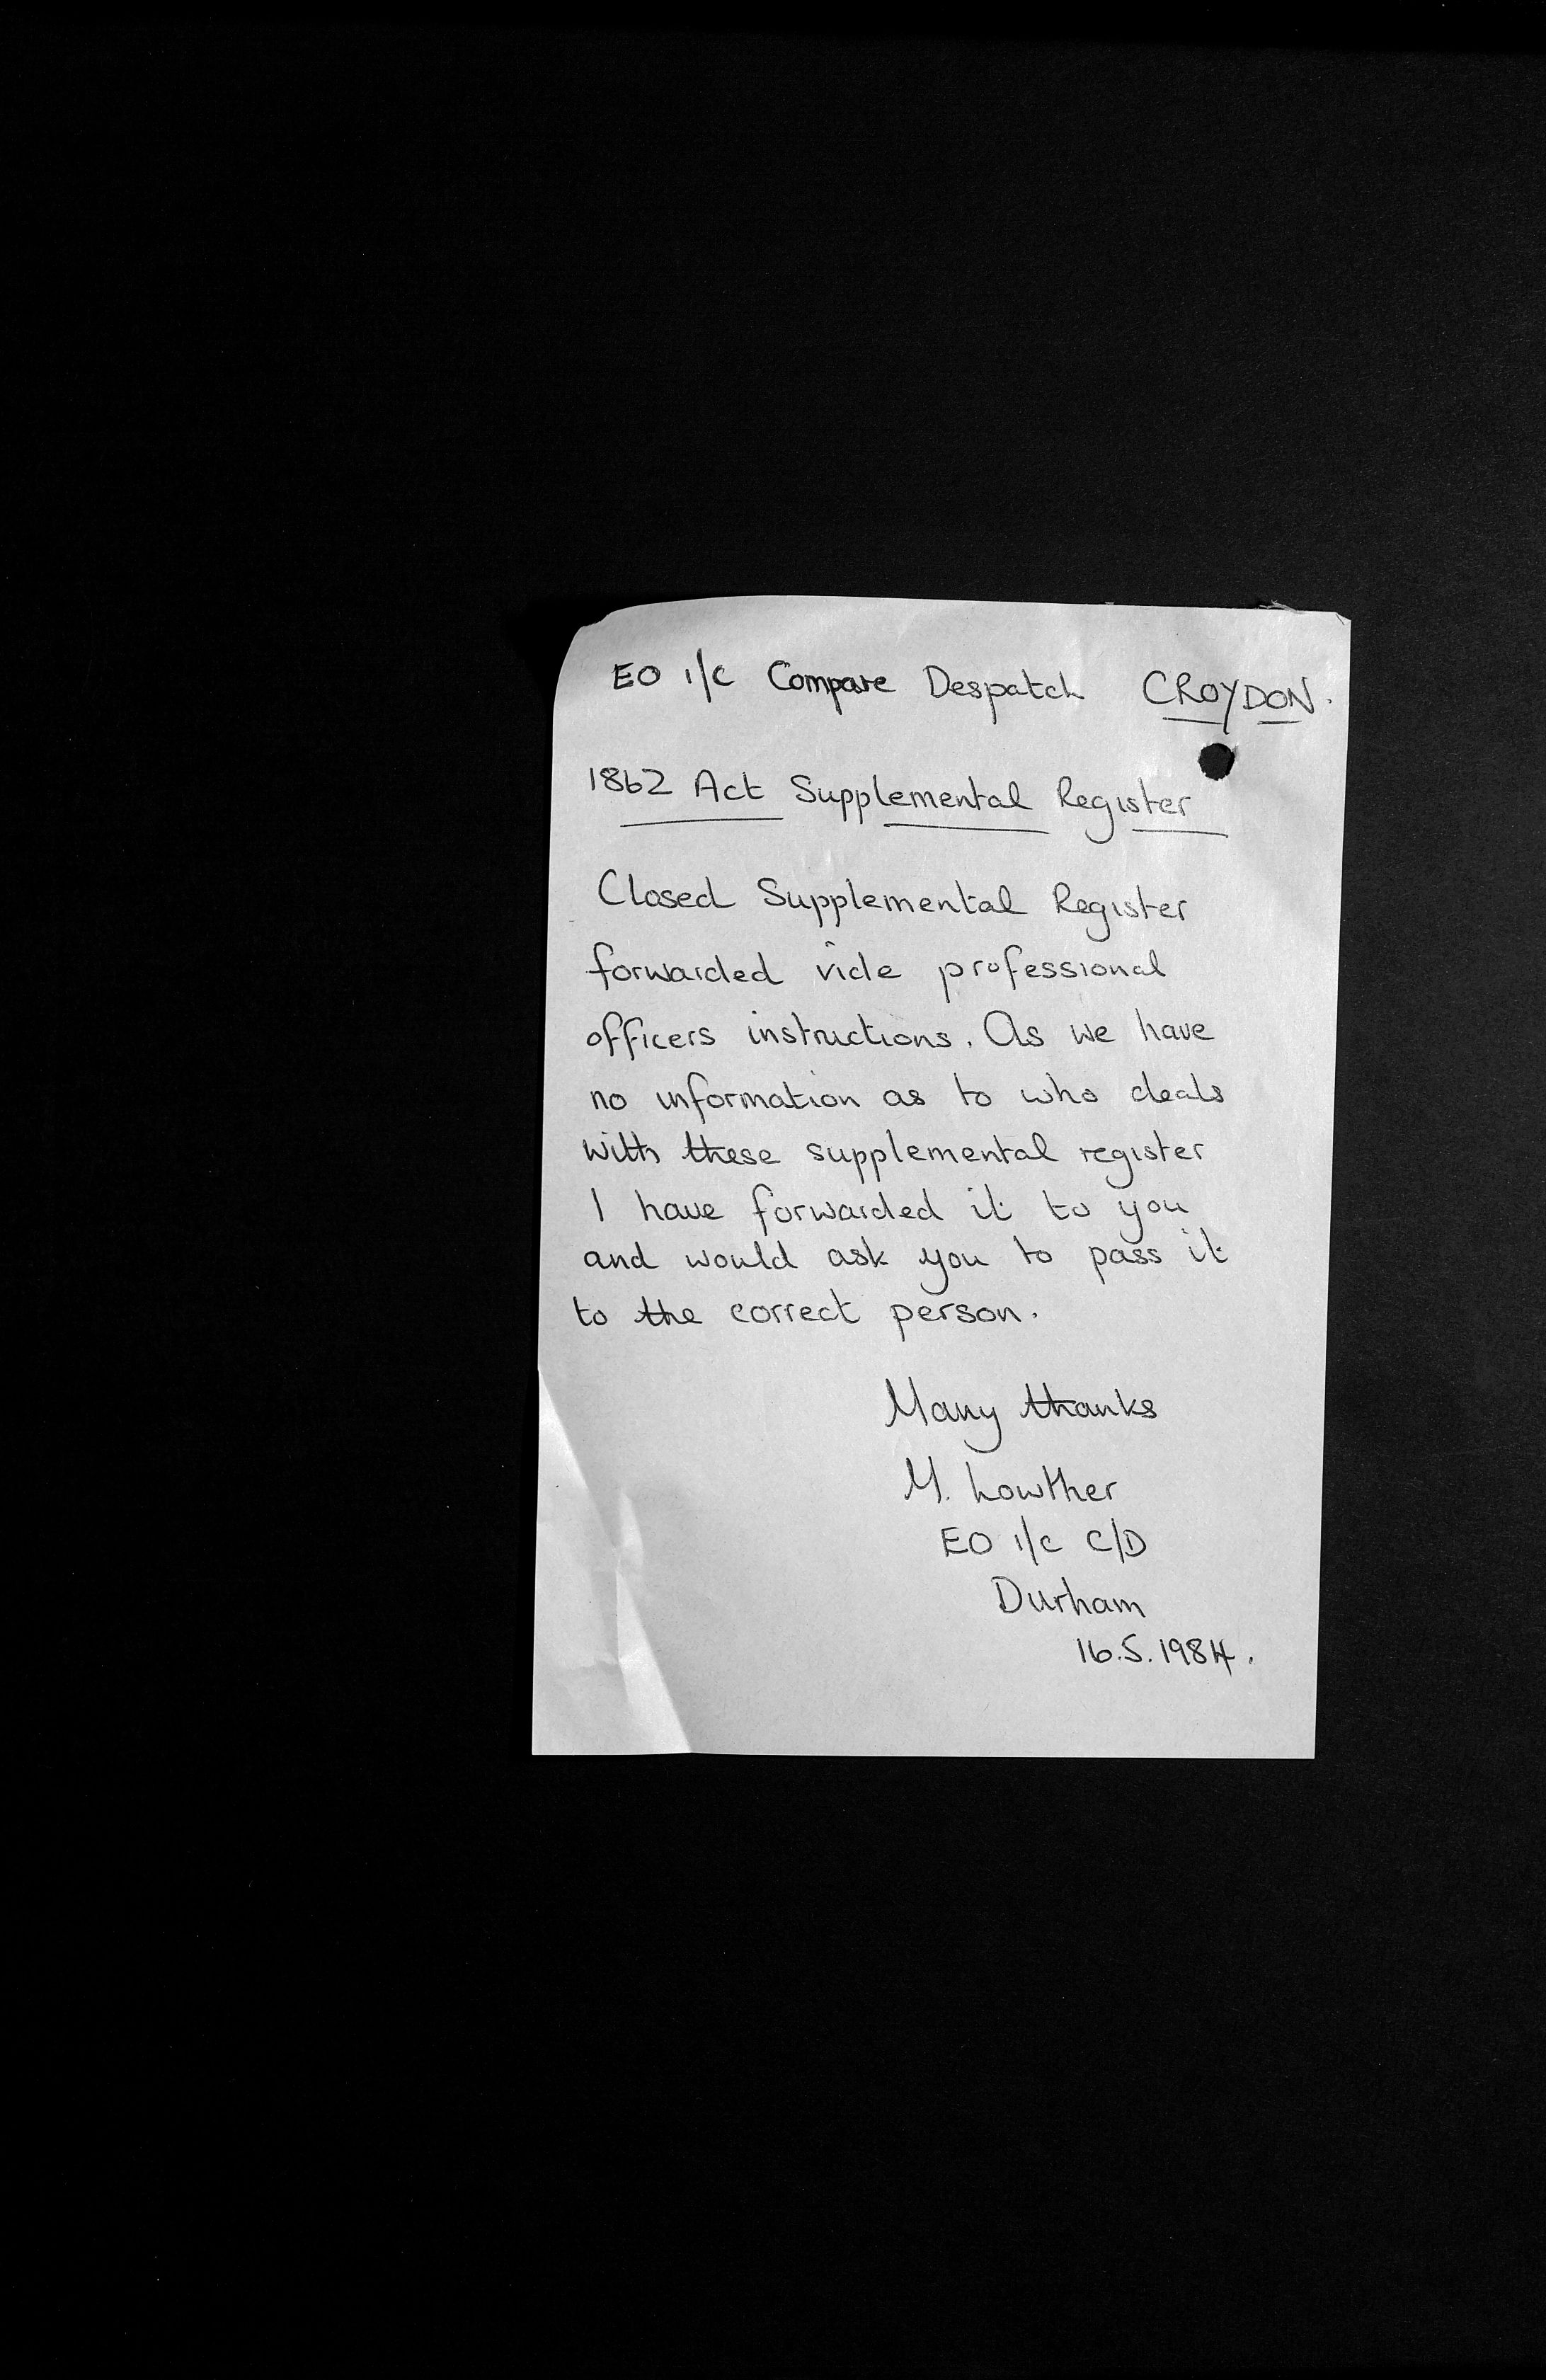 EO i/c Compare Despatch CROYDON.
1862 Act Supplemental Register
Closed Supplemental Register
forwarded vide professional
officers instructions. As we have
no information as to who deals
with these supplemental register
I have forwarded it to you
and would ask you to pass it
to the correct person.
Many thanks
M. Lowther
EO i/c C/D
Durham
16.5.1984.